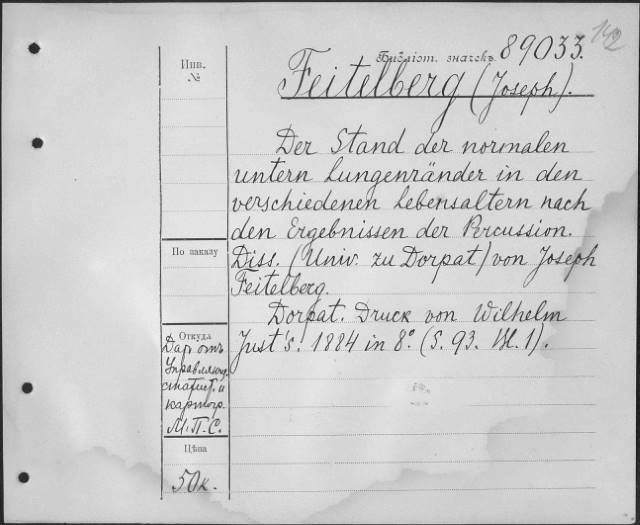 142
Библіот. значекъ 89033.
Инв.
№
Feitelberg (Joseph).
Der Stand der normalen
untern Lungenränder in den
verschiedenen Lebensaltern nach
den Ergebnissen der Percussion.
По заказу
Diss. (Univ. zu Dorpat) von Joseph
Feitelberg.
Dorpat. Druck von Wilhelm
Just's. 1884 in 8°. (S. 93. Bl. 1).
Откуда
Даръ отъ
Управляющ.
статист. и
картогр.
М.П.С.
Цѣна
50 к.